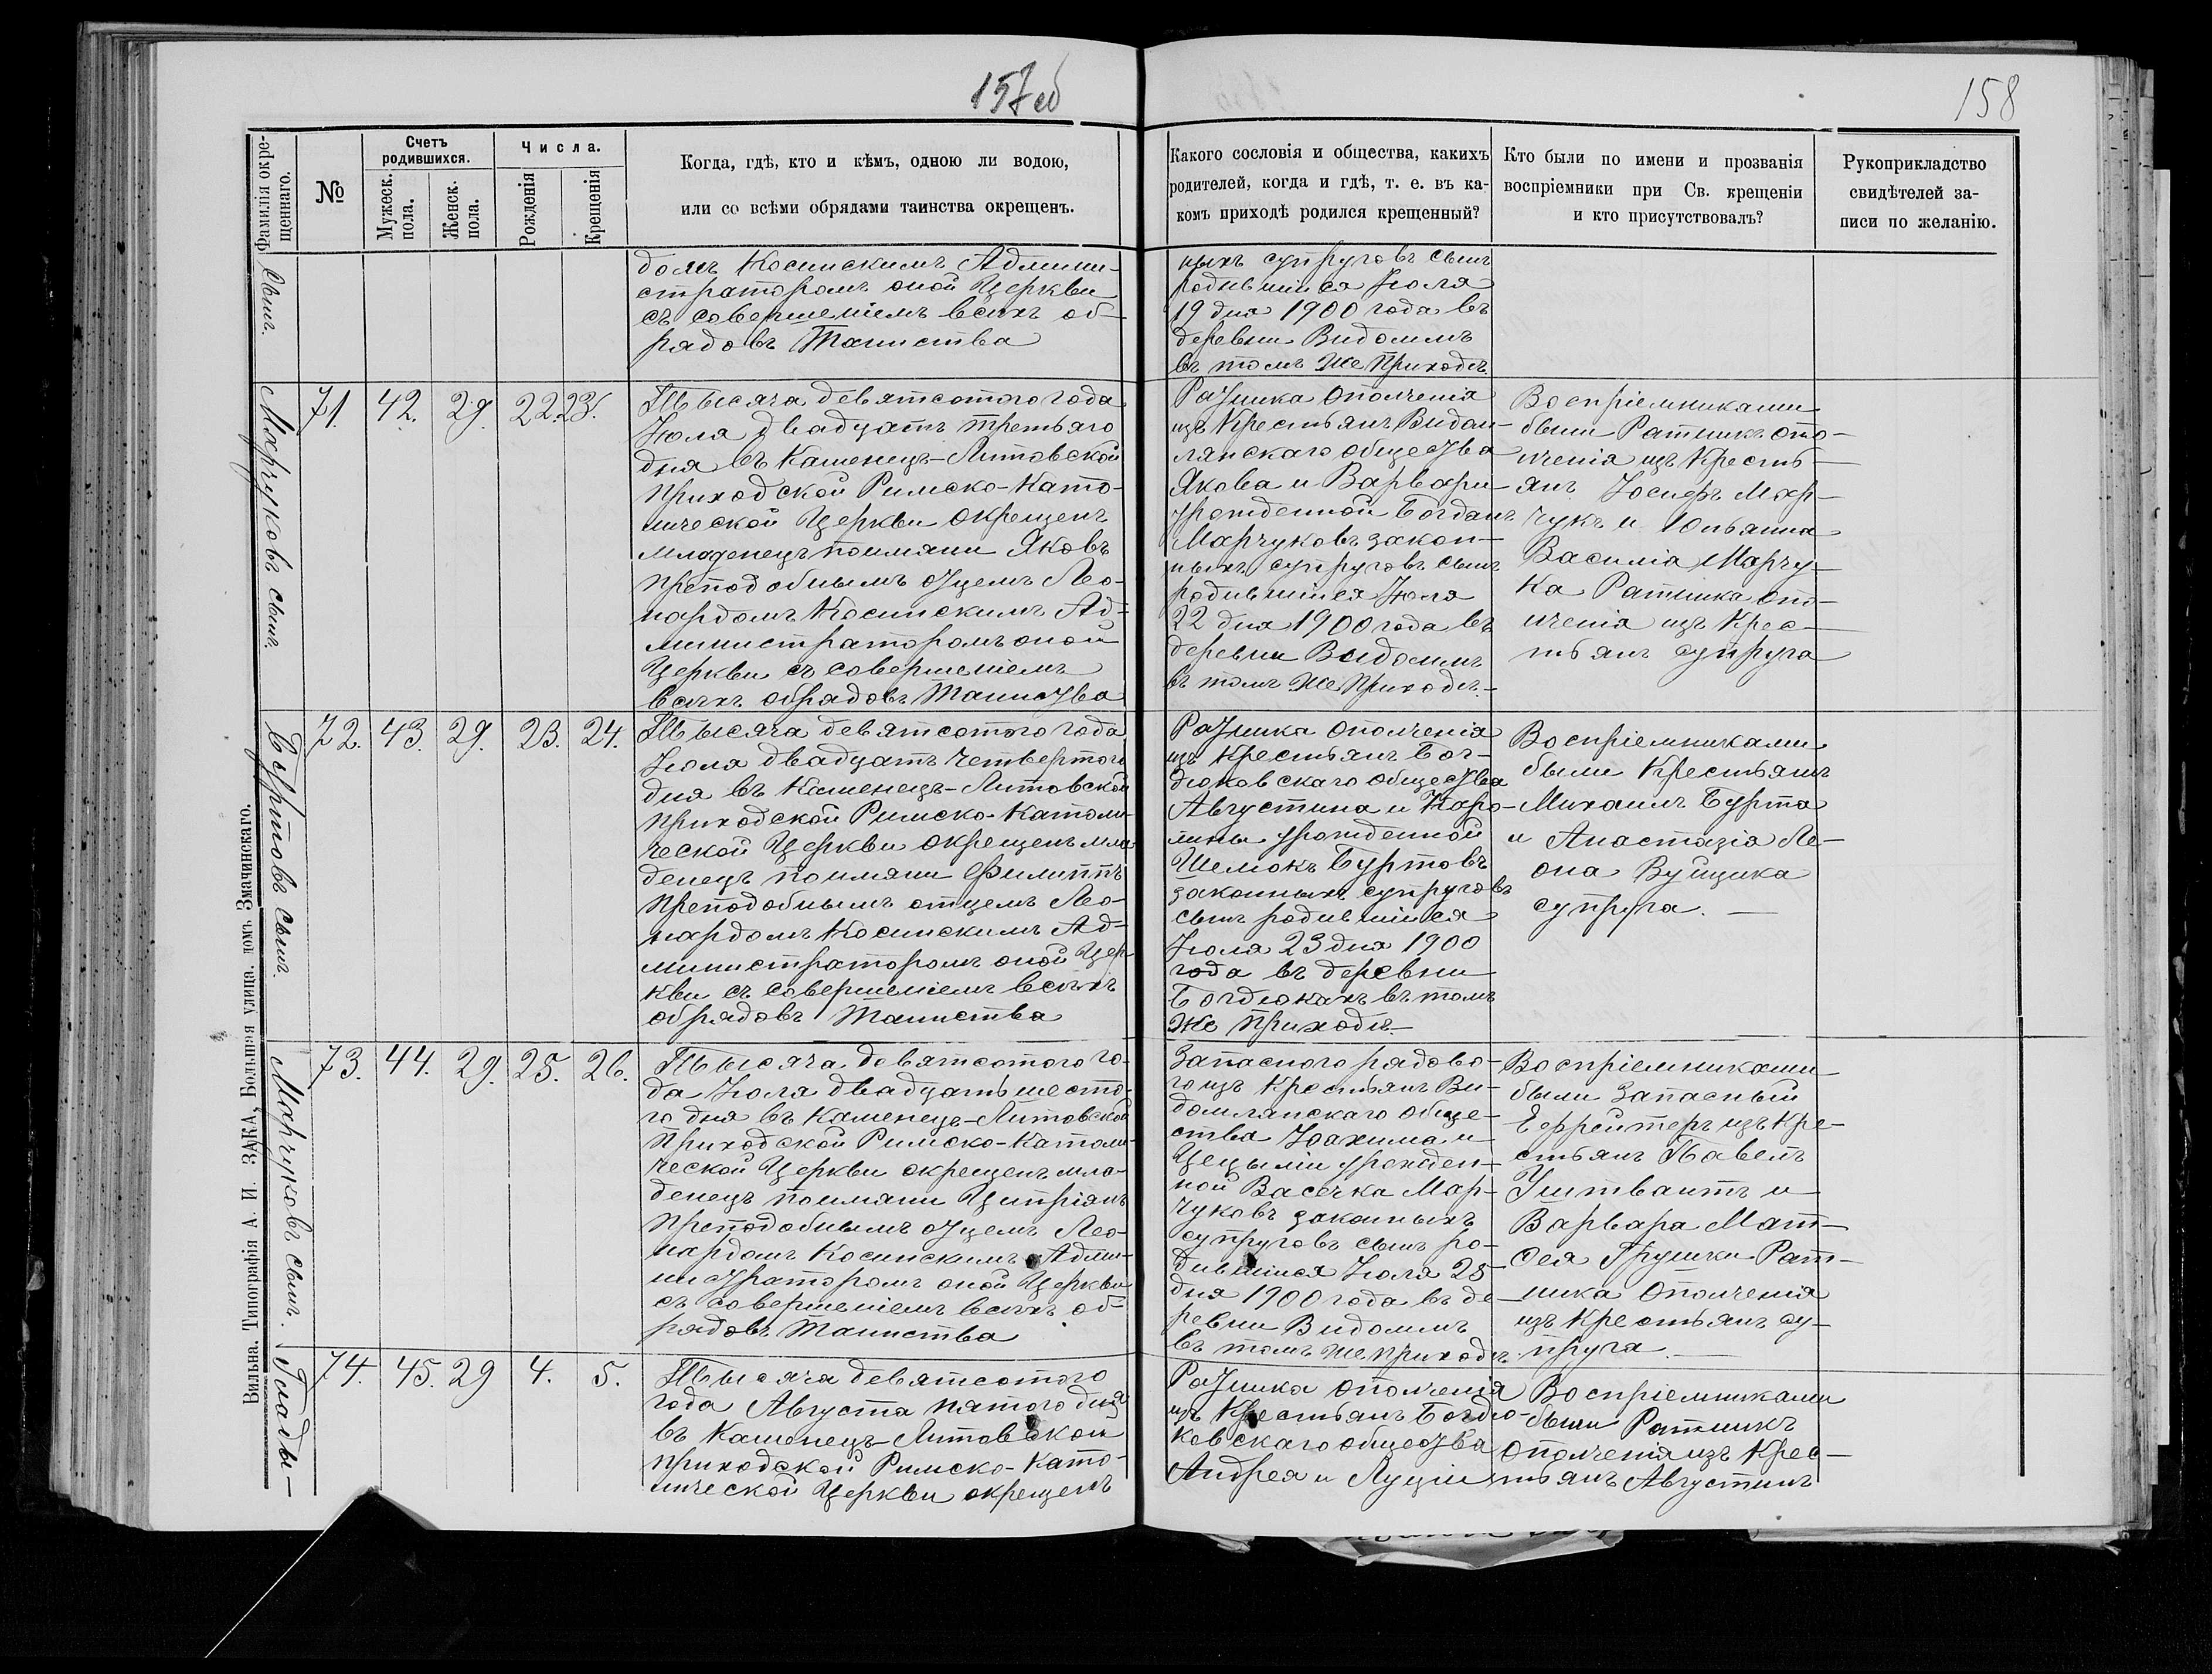 157об
158
Фамилія окре-
щеннаго.
№
Счетъ
родившихся.
Мужеск.
пола.
Женск.
пола.
Числа.
Рожденія
Крещенія
Когда, гдѣ, кто и кѣмъ, одною ли водою,
или со всѣми обрядами таинства окрещенъ.
Какого сословія и общества, какихъ
родителей, когда и гдѣ, т. е. въ ка-
комъ приходѣ родился крещенный?
Кто были по имени и прозванія
воспріемники при Св. крещеніи
и кто присутствовалъ?
Рукоприкладство
свидѣтелей за-
писи по желанію.
сынъ.
домъ Косинскимъ Админи-
страторомъ оной Церкви
съ совершеніемъ всѣхъ об-
рядовъ Таинства
ныхъ супруговъ сынъ
родившійся Іюля
19 дня 1900 года въ
деревни Видомлѣ
въ томъ же приходѣ.
Марчуковъ сынъ.
71. 42. 29. 22. 23.
Тысяча девятсотого года
Іюля двадцать третьяго
дня въ Каменецъ-Литовской
Приходской Римско-Като-
лической Церкви окрещенъ
младенецъ поимяни Яковъ
Преподобнымъ отцемъ Лео-
нардомъ Косинскимъ Ад-
министраторомъ оной
Церкви съ совершеніемъ
всѣхъ обрядовъ Таинства
Ратника ополченія
изъ Крестьянъ Видом-
лянскаго общества
Якова и Варвары
урожденной Богданъ
Марчуковъ закон-
ныхъ супруговъ сынъ
родившійся Іюля
22 дня 1900 года въ
деревни Видомлѣ
въ томъ же приходѣ.
Воспріемниками
были Ратникъ опо-
лченія изъ Кресть-
янъ Іосифъ Мар-
чукъ и Юльянна
Василія Марчу-
ка Ратника опо-
лченія изъ Крес-
тьянъ супруга
Буртовъ сынъ.
72. 43. 29. 23. 24.
Тысяча девятсотого года
Іюля двадцать четвертого
дня въ Каменецъ-Литовской
Приходской Римско-Католи-
ческой Церкви окрещенъ мла
денецъ поимяни Филиппъ
Преподобнымъ отцемъ Лео-
нардомъ Косинскимъ Ад-
министраторомъ оной Цер-
кви съ совершеніемъ всѣхъ
обрядовъ Таинства
Ратника ополченія
изъ Крестьянъ Бог-
дюковскаго общества
Августина и Каро-
лины урожденной
Шемокъ Буртовъ
законныхъ супруговъ
сынъ родившійся
Іюля 23 дня 1900
года въ деревни
Богдюкахъ въ томъ
же приходѣ.
Воспріемниками
были Крестьянъ
Михаилъ Бурта
и Анастазія Ле-
она Вуйцика
супруга.
Марчуковъ сынъ.
73. 44. 29. 25. 26.
Тысяча девятсотого го-
да Іюля двадцать шесто-
го дня въ Каменецъ-Литовской
Приходской Римско-Католи-
ческой Церкви окрещенъ мла-
денецъ поимяни Ципріянъ
Преподобнымъ отцемъ Лео-
нардомъ Косинскимъ Адми-
нистраторомъ оной Церкви
съ совершеніемъ всѣхъ об-
рядовъ Таинства
Запасного рядово-
го изъ Крестьянъ Ви-
домлянскаго обще-
ства Іоахима и
Цецыліи урожден-
ной Васечка Мар-
чуковъ законныхъ
супруговъ сынъ ро-
дившійся Іюля 25
дня 1900 года въ де-
ревни Видомлѣ
въ томъ же приходѣ.
Воспріемниками
были Запасный
Ефрейтеръ изъ Кре-
стьянъ Павелъ
и
Варвара Мат-
фея Грушки Рат-
ника ополченія
изъ Крестьянъ су-
пруга.
Глады-
74. 45. 29 4. 5.
Тысяча девятсотого
года Августа пятого дня
въ Каменецъ-Литовской
приходской Римско-Като-
лической Церкви окрещенъ
Ратника ополченія
изъ Крестьянъ Богдю-
ковскаго общества
Андрея и Луціи
Воспріемниками
были Ратникъ
ополченія изъ Крес-
тьянъ Августинъ
Вильна. Типографія А. И. ЗАКА, Большая улица, домъ Змачинскаго.